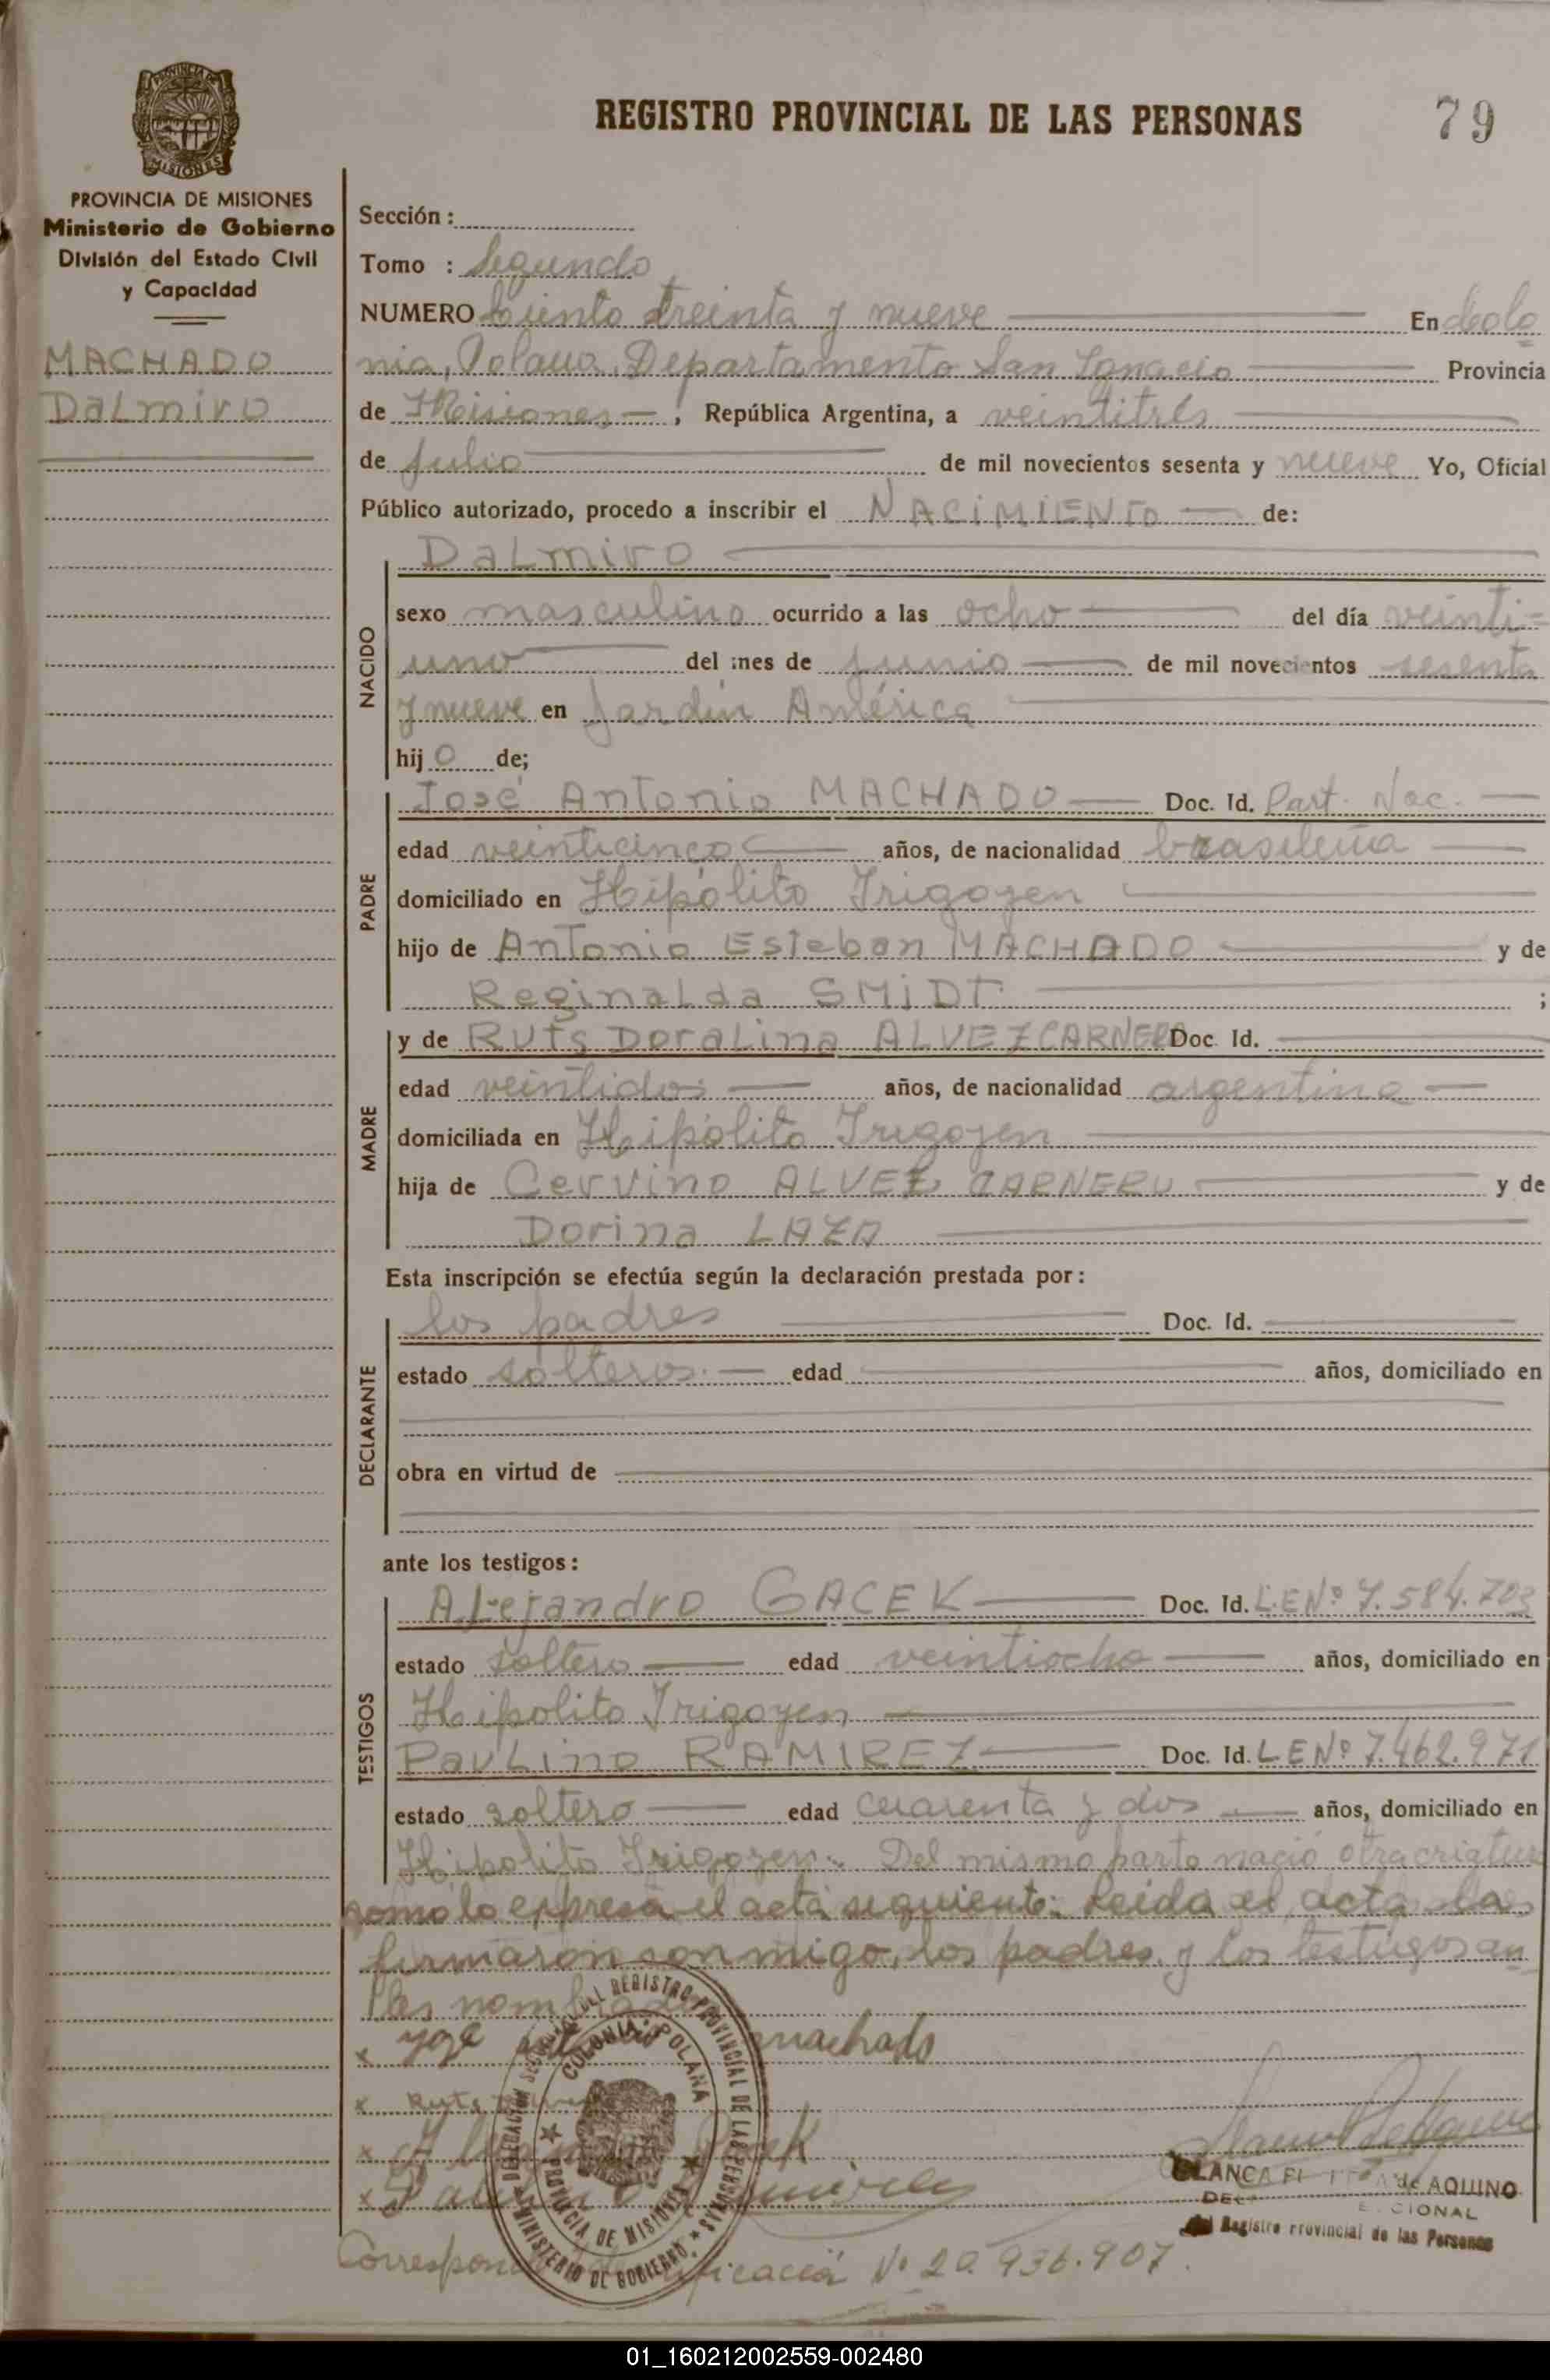 REGISTRO PROVINCIAL DE LAS PERSONAS 79
PROVINCIA DE MISIONES
Ministerio de Gobierno
División del Estado Civil
y Capacidad
MACHADO
Dalmiro
Sección:
Tomo : Segundo
NUMERO Ciento treinta y nueve En Colo
nia, Polana, Departamento San Ignacio Provincia
de Misiones, República Argentina, a veintitrés
de julio de mil novecientos sesenta y nueve Yo, Oficial
Público autorizado, procedo a inscribir el NACIMIENTO de:
NACIDO
Dalmiro
sexo masculino ocurrido a las ocho del día veinti-
uno del mes de junio de mil novecientos sesenta
y nueve en Jardín América
hijo de;
PADRE
José Antonio MACHADO Doc. Id. Part. Nac.
edad veinticinco años, de nacionalidad brasileña
domiciliado en Hipólito Irigoyen
hijo de Antonio Esteban MACHADO y de
Reginalda SMIDT ;
MADRE
y de Ruts Doralina ALVEZ CARNERO Doc. Id.
edad veintidos años, de nacionalidad argentina
domiciliada en Hipólito Irigoyen
hija de Cervino ALVEZ CARNERO y de
Dorina LAZA
Esta inscripción se efectúa según la declaración prestada por:
DECLARANTE
los padres Doc. Id.
estado solteros. edad años, domiciliado en
obra en virtud de
ante los testigos:
TESTIGOS
Alejandro GACEK Doc. Id. L.E Nº 7.584.703
estado soltero edad veintiocho años, domiciliado en
Hipolito Irigoyen
Paulino RAMIREZ Doc. Id. L E Nº 7.462.971
estado soltero edad cuarenta y dos años, domiciliado en
Hipolito Irigoyen. Del mismo parto nació otra criatura
como lo expresa el acta siguiente: Leida el acta la
firmaron conmigo, los padres y los testigos an
tes
x machado
x Ruts
x
x
DELEGACION REGISTRO PROVINCIAL DE LAS PERSONAS
MINISTERIO DE GOBIERNO
COLONIA POLANA
PROVINCIA DE MISIONES
BLANCA de AQUINO
Registro Provincial de las Personas
Nº 20.936.907.
01_160212002559-002480